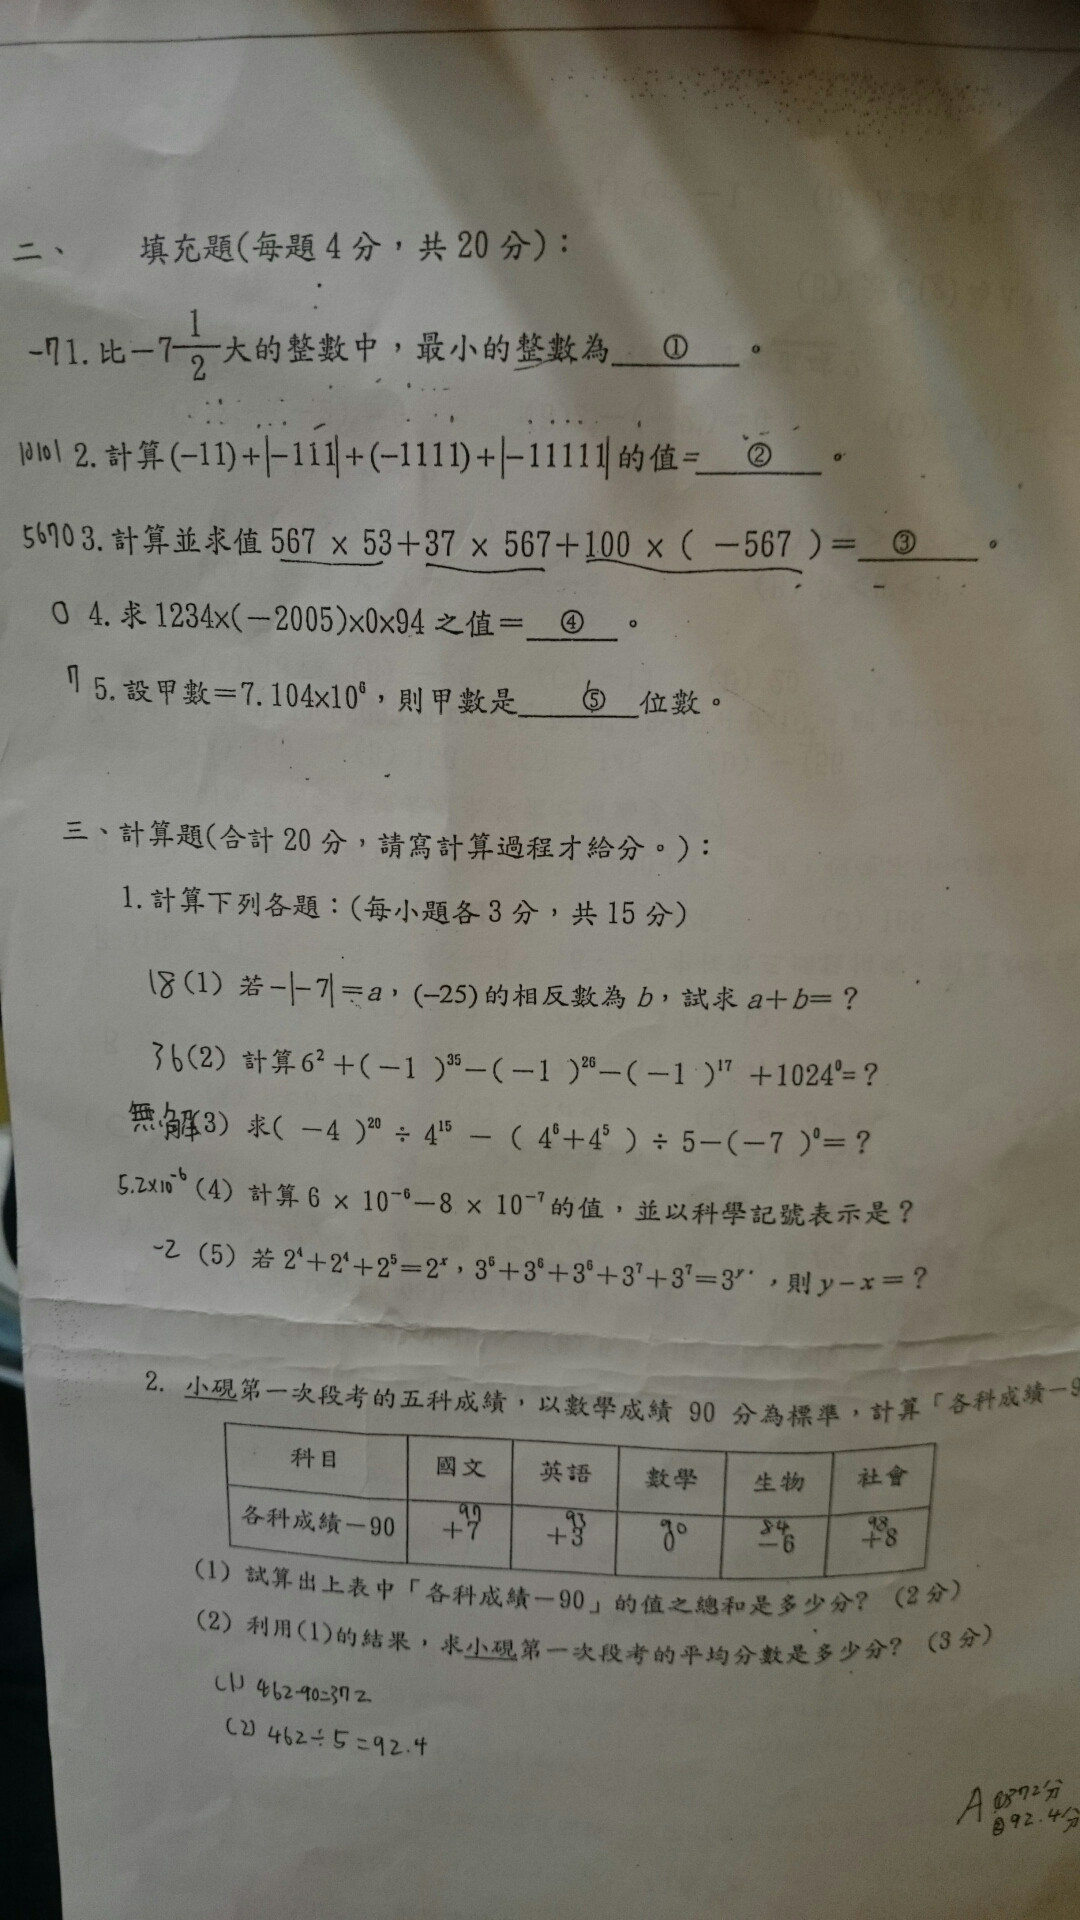 二、 填充題(每題4分，共20分)：
-7 1.比－7 1/2 大的整數中，最小的整數為 ① 。
10101 2.計算(−11)+|−111|+(−1111)+|−11111|的值= ② 。
5670 3.計算並求值 567 × 53＋37 × 567＋100 ×（ －567 ）＝ ③ 。
0 4.求 1234×(－2005)×0×94 之值＝ ④ 。
7 5.設甲數＝7.104×10⁶，則甲數是 ⑤ 位數。
三、計算題(合計20分，請寫計算過程才給分。)：
1.計算下列各題：(每小題各3分，共15分)
18 (1) 若−|−7|＝a，(−25)的相反數為 b，試求 a＋b＝？
36 (2) 計算 6²＋(－1 )³⁵－(－1 )²⁶－(－1 )¹⁷ ＋1024⁰=？
無解 (3) 求( －4 )²⁰ ÷ 4¹⁵ － ( 4⁶＋4⁵ ) ÷ 5－(－7 )⁰＝？
5.2×10⁻⁶ (4) 計算 6 × 10⁻⁶－8 × 10⁻⁷的值，並以科學記號表示是？
-2 (5) 若 2⁴＋2⁴＋2⁵＝2ˣ，3⁶＋3⁶＋3⁶＋3⁷＋3⁷＝3ʸ，則 y－x＝？
2. 小硯第一次段考的五科成績，以數學成績 90 分為標準，計算「各科成績－9
科目 國文 英語 數學 生物 社會
97 93 90 84 98
各科成績－90 +7 +3 0 －6 +8
(1) 試算出上表中「各科成績－90」的值之總和是多少分? (2分)
(2) 利用(1)的結果，求小硯第一次段考的平均分數是多少分? (3分)
(1) 462-90=372
(2) 462÷5=92.4
A ①372分
②92.4分